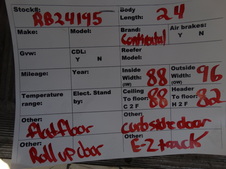 Stock#: RB24195 Body Length: 24
Make: Model: Brand: Continental Air brakes: Y N
Gvw: CDL: Y N Reefer Model:
Mileage: Year: Inside Width: 88 Outside Width: 96
Temperature range: Elect. Stand by: Ceiling To floor C 2 F 88 Header To floor H 2 F 82
Other: Flat floor Other: curbside door
Other: Roll up door Other: E-Z track